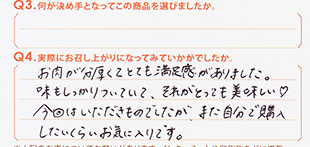 Q3.何が決め手となってこの商品を選びましたか。
Q4.実際にお召し上がりになってみていかがでしたか。
お肉が分厚くてとても満足感がありました。
味もしっかりついていて、それがとっても美味しい♡
今回はいただきものでしたが、また自分で購入
したいくらいお気に入りです。